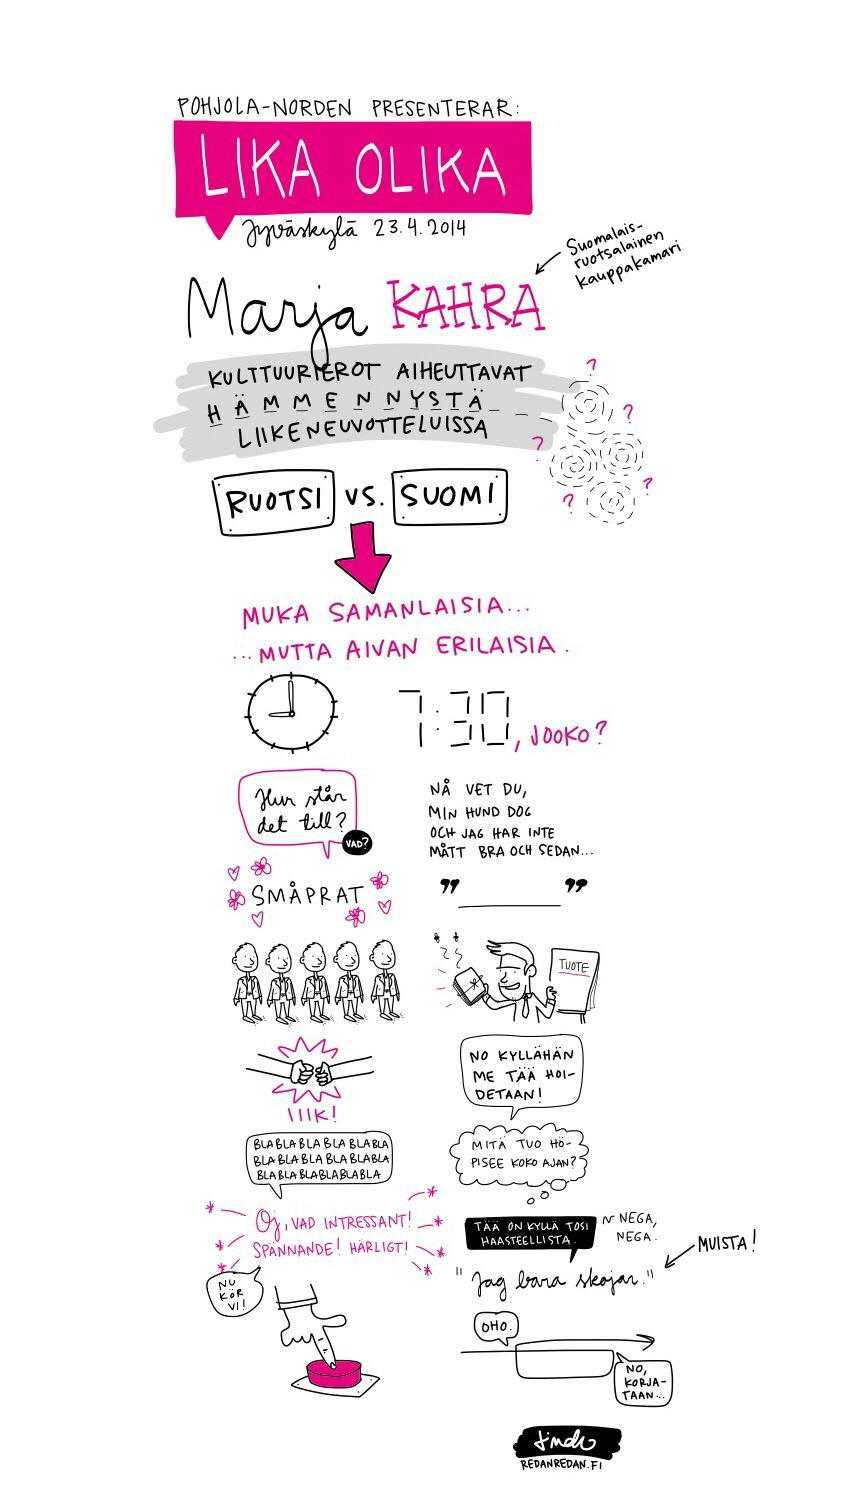 POHJOLA-NORDEN PRESENTERAR:
LIKA OLIKA
Jyväskylä 23.4.2014
Suomalais-
ruotsalainen
kauppakamari
Marja KAHRA
KULTTUURIEROT AIHEUTTAVAT
HÄMMENNYSTÄ
LIIKENEUVOTTELUISSA
? ? ? ? ?
RUOTSI VS. SUOMI
MUKA SAMANLAISIA...
...MUTTA AIVAN ERILAISIA.
7:30, JOOKO?
Hur står
det till?
VAD?
NÅ VET DU,
MIN HUND DOG
OCH JAG HAR INTE
MÅTT BRA OCH SEDAN...
SMÅPRAT
" "
TUOTE
NO KYLLÄHÄN
ME TÄÄ HOI-
DETAAN!
IIIK!
BLABLABLABLABLABLA
BLABLABLABLABLABLA
BLABLABLABLABLABLA
MITÄ TUO HÖ-
PISEE KOKO AJAN?
Oj, VAD INTRESSANT!
SPÄNNANDE! HÄRLIGT!
TÄÄ ON KYLLÄ TOSI
HAASTEELLISTA.
~ NEGA,
NEGA.
MUISTA!
"Jag bara skojar."
NU
KÖR
VI!
OHO.
NO,
KORJA-
TAAN...
REDANREDAN.FI